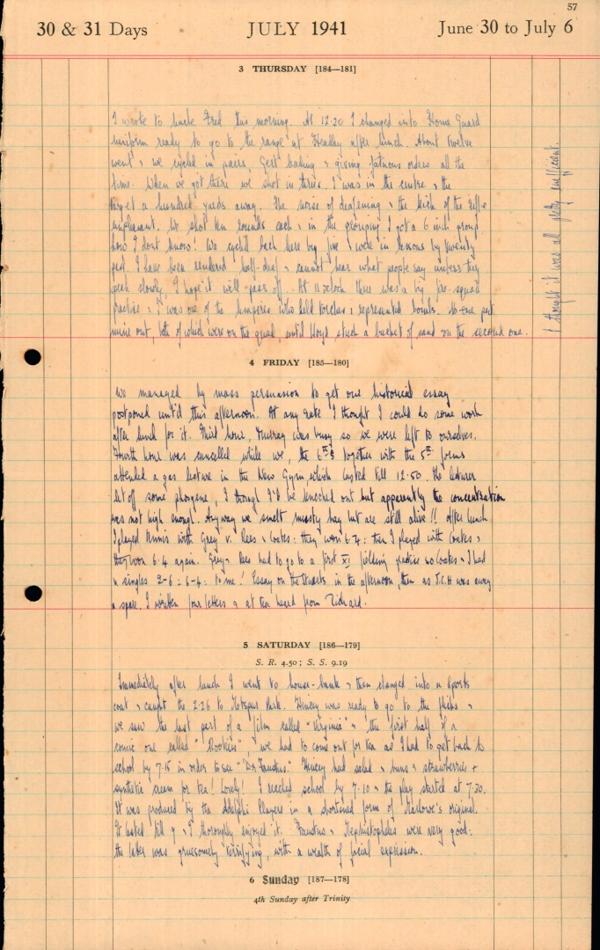 57
30 & 31 Days JULY 1941 June 30 to July 6
3 THURSDAY [184—181]
I wrote to Uncle Fred this morning. At 12.20 I changed into Home Guard
uniform ready to go to the range at Headley after lunch. About twelve
went & we cycled in pairs, Gest barking & giving fatuous orders all the
time. When we got there we shot in threes. I was in the centre & the
target a hundred yards away. The noise is deafening & the kick of the rifle
unpleasant. We shot ten rounds each & in the grouping I got a 6 inch group
how I dont know! We cycled back here by five & were in lessons by twenty
past. I have been rendered half-deaf & cannot hear what people say unless they
speak slowly. I hope it will pass off. At 11 o'clock there was a fire-squad
practice & I was one of the umpires who held torches & represented bombs. No-one put
mine out, both of which were on the quad, until Lloyd stuck a bucket of sand on the second one.
I thought it was all pretty inefficient.
4 FRIDAY [185—180]
We managed by mass persuasion to get our historical essay
postponed until this afternoon. At any rate I thought I could do some work
after lunch for it. Third hour, Murray was busy so we were left to ourselves.
Fourth hour was cancelled while we, the 6ths together with the 5th forms
attended a gas lecture in the New Gym which lasted till 12.50. The lecturer
let off some phosgene, I thought I'd be knocked out but apparently the concentration
was not high enough. Anyway we smelt musty hay but are still alive!! After lunch
I played tennis with Grey v. Rees & Coates: they won 6-4: then I played with Coates &
they won 6-4 again. Grey & Rees had to go to a first XI fielding practice so Coates & I had
a singles 2-6: 6-4: to me! Essay on the in the afternoon, then as J.C.H was away
a spare. I written four letters & at tea heard from Richard.
5 SATURDAY [186—179]
S. R. 4.50; S. S. 9.19
Immediately after lunch I went to house-bank & then changed into a sports
coat & caught the 2.26 to Motspur Park. was ready to go to the flicks &
we saw the last part of a film called "Virginia" & the first half of a
comic one called "Rookies", we had to come out for tea as I had to get back to
school by 7.15 in order to see "Dr Faustus." had salad & buns & strawberries &
synthetic cream for tea! Lovely! I reached school by 7.10 & the play started at 7.30.
It was produced by the Adelphi Players in a shortened form of Marlowe's original.
It lasted till 9 & I thoroughly enjoyed it. Faustus & Mephistopheles were very good:
the later was gruesomely terrifying, with a wealth of facial expression.
6 Sunday [187—178]
4th Sunday after Trinity